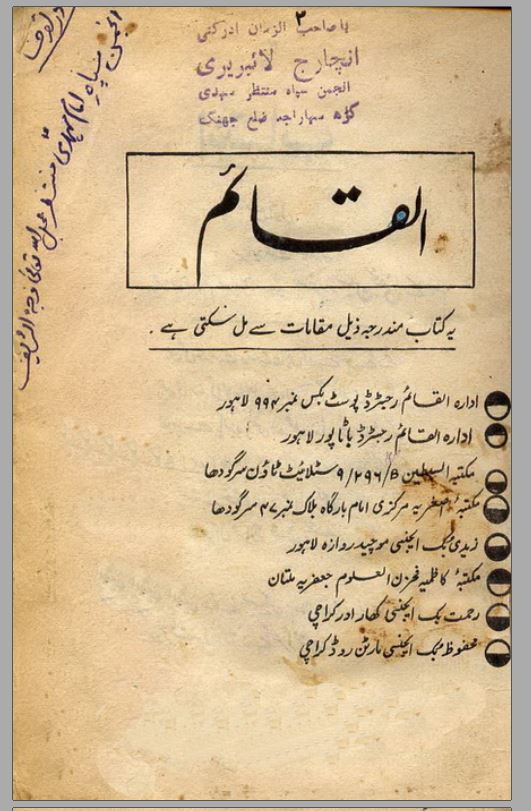 ۲
یا صاحب الزمان ادرکنی
انچارج لائبریری
انجمن سپاہ منتظر مہدی
گڑھ مہاراجہ ضلع جھنگ
انجمن سپاہ امام مہدی منتظر عجل اللہ تعالیٰ فرجہ الشریف
القائم
یہ کتاب مندرجہ ذیل مقامات سے مل سکتی ہے .
ادارہ القائم رجسٹرڈ پوسٹ بکس نمبر ۹۹۴ لاہور
ادارہ القائم رجسٹرڈ باٹا پور لاہور
مکتبہ السبطین ۹/۲۹۶/B سٹلائیٹ ٹاؤن سرگودھا
مکتبۂ اصغریہ مرکزی امام بارگاہ بلاک نمبر ۴۷ سرگودھا
زیدی بک ایجنسی موچیدروازہ لاہور
مکتبۂ کاظمیہ مخزن العلوم جعفریہ ملتان
رحمت بک ایجنسی کھارادر کراچی
محفوظ بک ایجنسی مارٹن روڈ کراچی